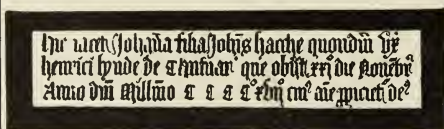 Hic iacet Johãna filia Johis hacche quondm̃ Ux̃
henrici bynde de Cantuar' que obijt xxj die Nouẽbr'
Anno dm̃ Millm̃o C C C C cui' aĩe ppiciet' de'